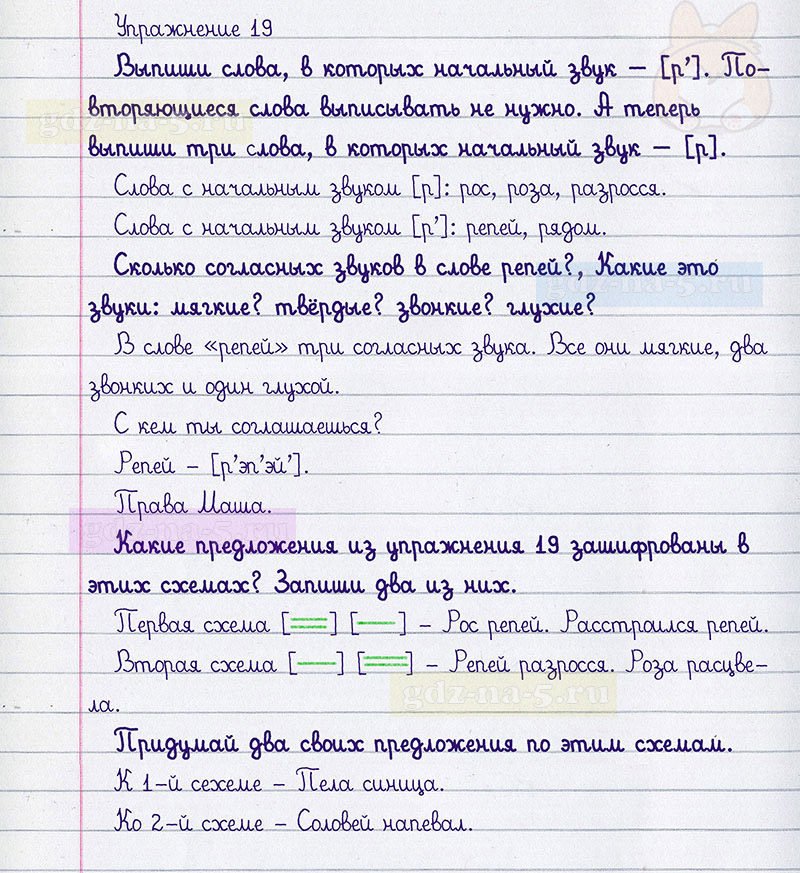 Упражнение 19
Выпиши слова, в которых начальный звук – [р’]. По-
вторяющиеся слова выписывать не нужно. А теперь
выпиши три слова, в которых начальный звук – [р].
Слова с начальным звуком [р]: рос, роза, разросся.
Слова с начальным звуком [р’]: репей, рядом.
Сколько согласных звуков в слове репей?, Какие это
звуки: мягкие? твёрдые? звонкие? глухие?
В слове «репей» три согласных звука. Все они мягкие, два
звонких и один глухой.
С кем ты соглашаешься?
Репей – [р’эп’эй’].
Права Маша.
Какие предложения из упражнения 19 зашифрованы в
этих схемах? Запиши два из них.
Первая схема [═] [—] – Рос репей. Расстроился репей.
Вторая схема [—] [═] – Репей разросся. Роза расцве-
ла.
Придумай два своих предложения по этим схемам.
К 1-й сехеме – Пела синица.
Ко 2-й схеме – Соловей напевал.
gdz-na-5.ru
gdz-na-5.ru
gdz-na-5.ru
gdz-na-5.ru